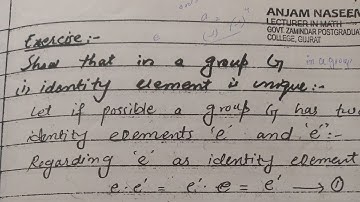 ANJAM NASEEM
LECTURER IN MATH
GOVT. ZAMINDAR POSTGRADUA
COLLEGE, GUJRAT
Exercise:-
Show that in a group G in a group
i) identity element is unique:-
Let if possible a group G has two
identity elements 'e' and 'e'':-
Regarding 'e' as identity element
e·e' = e'·e = e' → ①